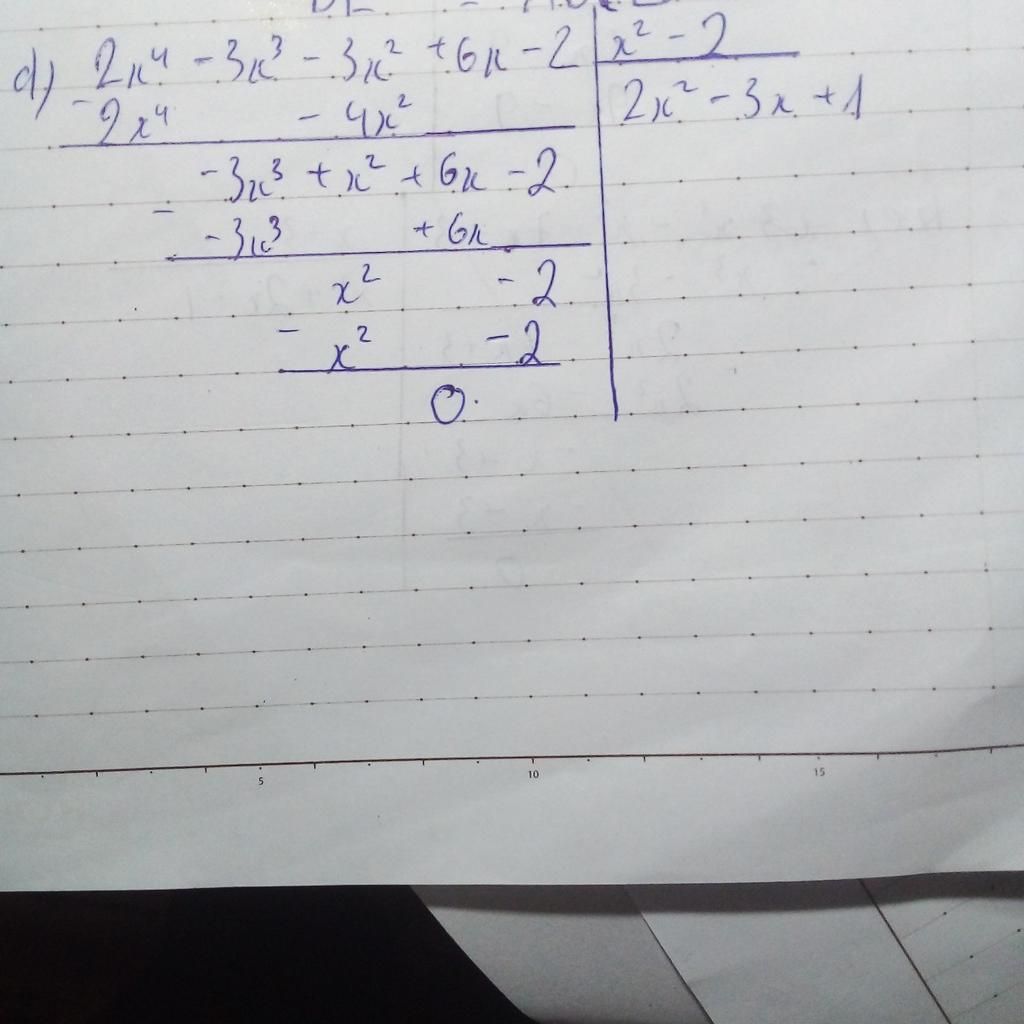 d) 2x⁴ - 3x³ - 3x² + 6x - 2 | x² - 2
- 2x⁴ - 4x² | 2x² - 3x + 1
- 3x³ + x² + 6x - 2
- - 3x³ + 6x
x² - 2
- x² - 2
0
5 10 15